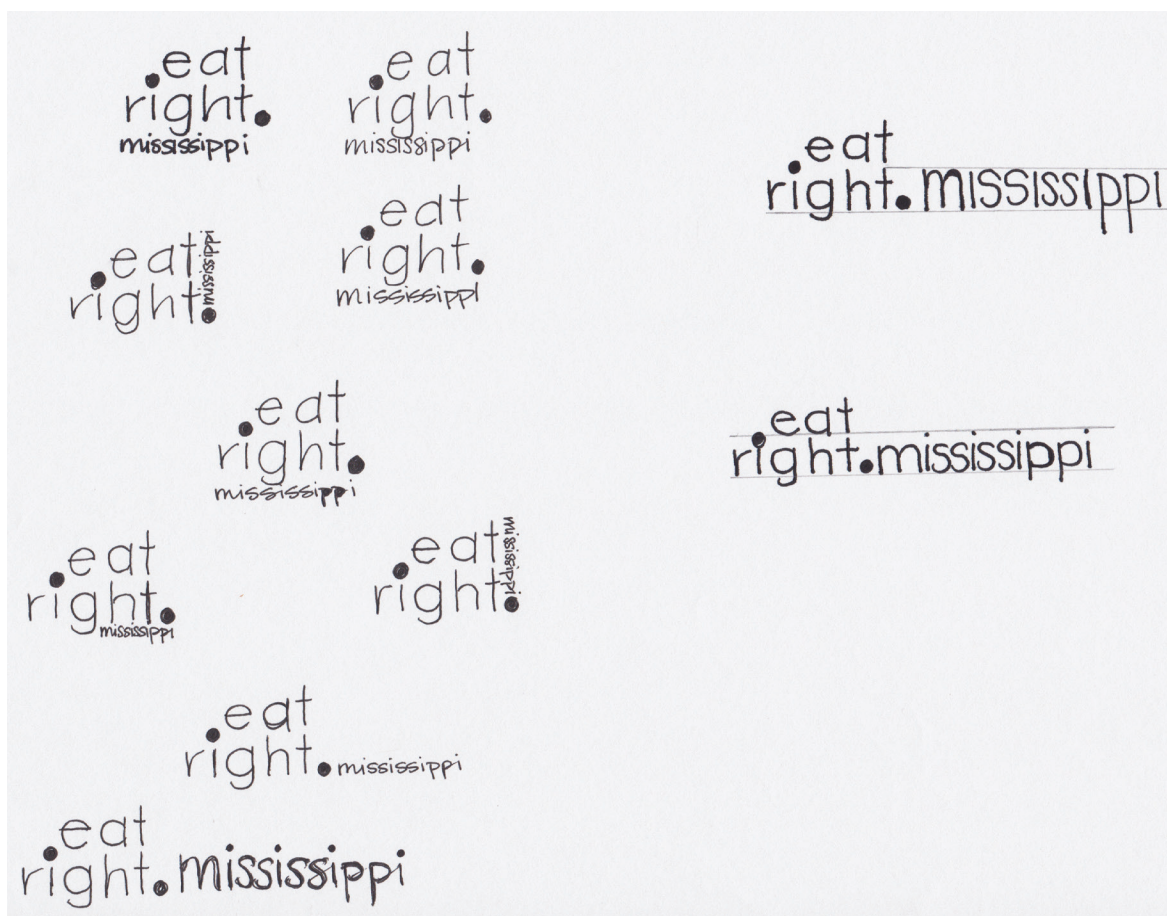 eat
right.
mississippi
eat
right.
mississippi
eat
right. mississippi
eat
right.
mississippi
eat
right.
mississippi
eat
right.
mississippi
eat
right.mississippi
eat
right.
mississippi
eat
right.
mississippi
eat
right. mississippi
eat
right. mississippi